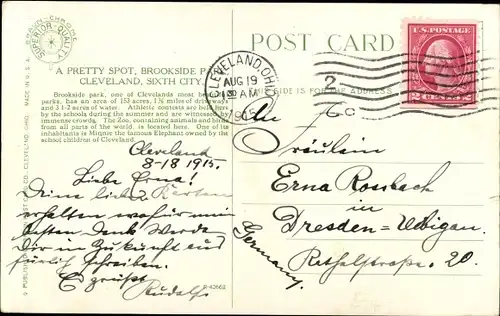 BRAUN-CHROME
SUPERIOR QUALITY
MADE IN U.S.A.
A PRETTY SPOT, BROOKSIDE PA
CLEVELAND, SIXTH CITY.
Brookside park, one of Clevelands most be
parks, has an area of 153 acres, 1½ miles of driveways
and 3 1-2 acres of water. Athletic contests are held here
by the schools during the summer and are witnessed by
immense crowds. The Zoo, containing animals and birds
from all parts of the world, is located here. One of its
inhabitants is Minnie the famous Elephant owned by the
school children of Cleveland.
Cleveland
8-18 1915.
Liebe Erna!
Deine lieben Karten
erhalten wofür mein
besten Dank. Werde
Dir in Zukunft aus-
fürlich schreiben.
Es grüßt
Rudolf
R-43662
POST CARD
THIS SIDE IS FOR THE ADDRESS
CLEVELAND, OHIO
AUG 19
AM
191
2
U.S. POSTAGE
2 CENTS 2
An
Fräulein
Erna Rossbach
in
Dresden=Uebigau.
Rethelstrasse. 20.
Germany.